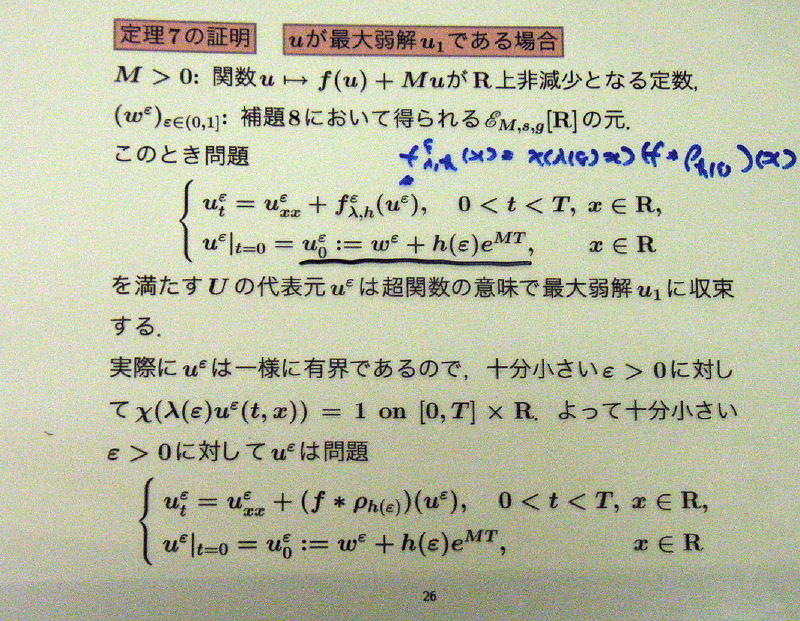 定理7の証明 uが最大弱解u₁である場合
M > 0: 関数u ↦ f(u) + MuがR上非減少となる定数,
(w^ε)_{ε∈(0,1]}: 補題8において得られるℰ_{M,s,g}[R]の元.
このとき問題
f^ε_{λ,h}(x) = χ(λ(ε)x)(f * ρ_{h(ε)})(x)
u^ε_t = u^ε_{xx} + f^ε_{λ,h}(u^ε), 0 < t < T, x ∈ R,
u^ε|_{t=0} = u^ε_0 := w^ε + h(ε)e^{MT}, x ∈ R
を満たすUの代表元u^εは超関数の意味で最大弱解u₁に収束
する.
実際にu^εは一様に有界であるので, 十分小さいε > 0に対し
てχ(λ(ε)u^ε(t, x)) = 1 on [0, T] × R. よって十分小さい
ε > 0に対してu^εは問題
u^ε_t = u^ε_{xx} + (f * ρ_{h(ε)})(u^ε), 0 < t < T, x ∈ R,
u^ε|_{t=0} = u^ε_0 := w^ε + h(ε)e^{MT}, x ∈ R
26